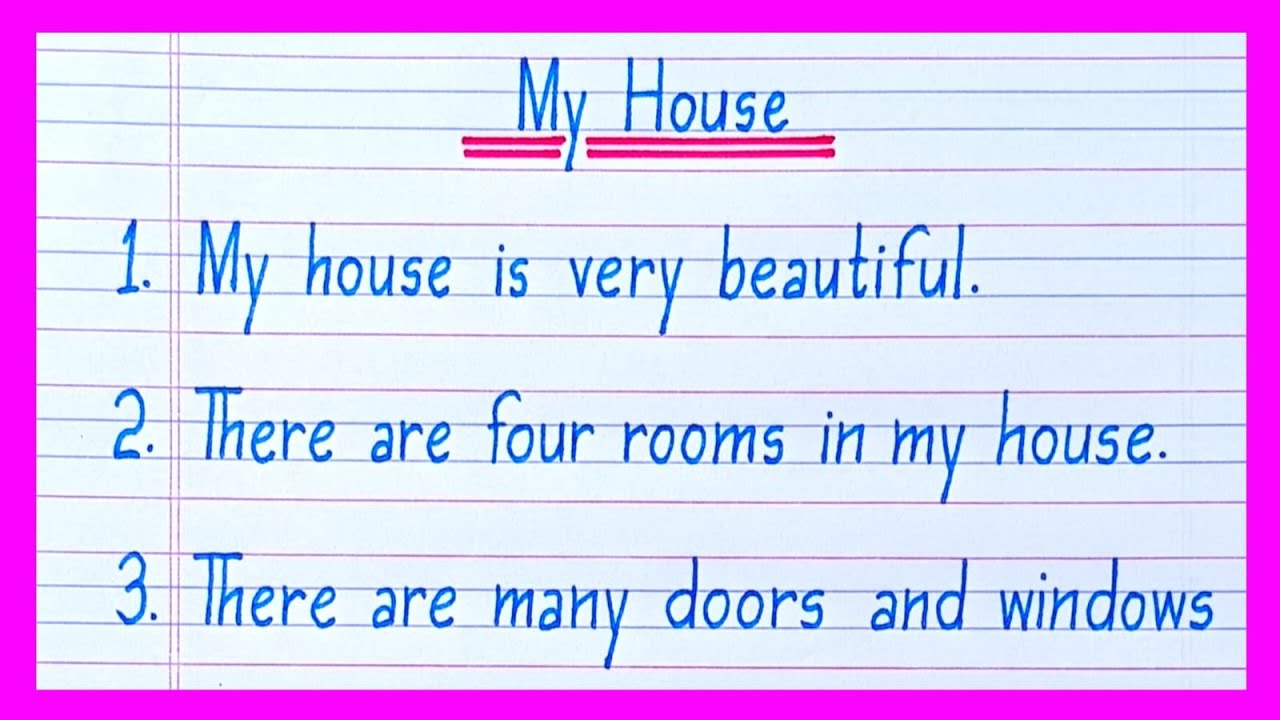 My House
1. My house is very beautiful.
2. There are four rooms in my house.
3. There are many doors and windows